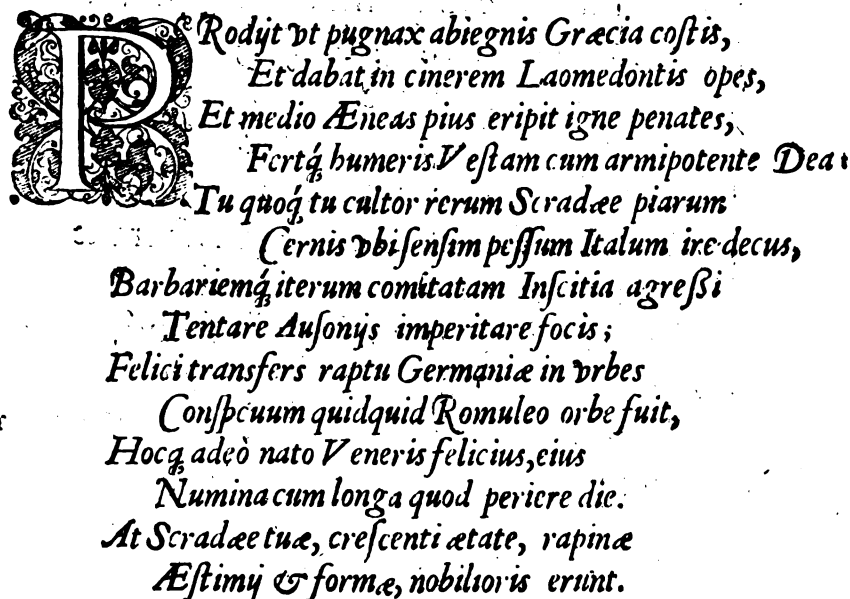 PRodijt vt pugnax abiegnis Græcia coſtis,
Et dabat in cinerem Laomedontis opes,
Et medio Æneas pius eripit igne penates,
Fertq́; humeris Veſtam cum armipotente Dea:
Tu quoq́; tu cultor rerum Scradæe piarum
Cernis vbi ſenſim peſſum Italum ire decus,
Barbariemq́; iterum comitatam Inſcitia agreßi
Tentare Auſonijs imperitare focis;
Felici transfers raptu Germaniæ in vrbes
Conſpcuum quidquid Romuleo orbe fuit,
Hocq; adeò nato Veneris felicius, eius
Numina cum longa quod periere die.
At Scradæe tuæ, creſcenti ætate, rapinæ
Æſtimij & formæ, nobilioris erunt.